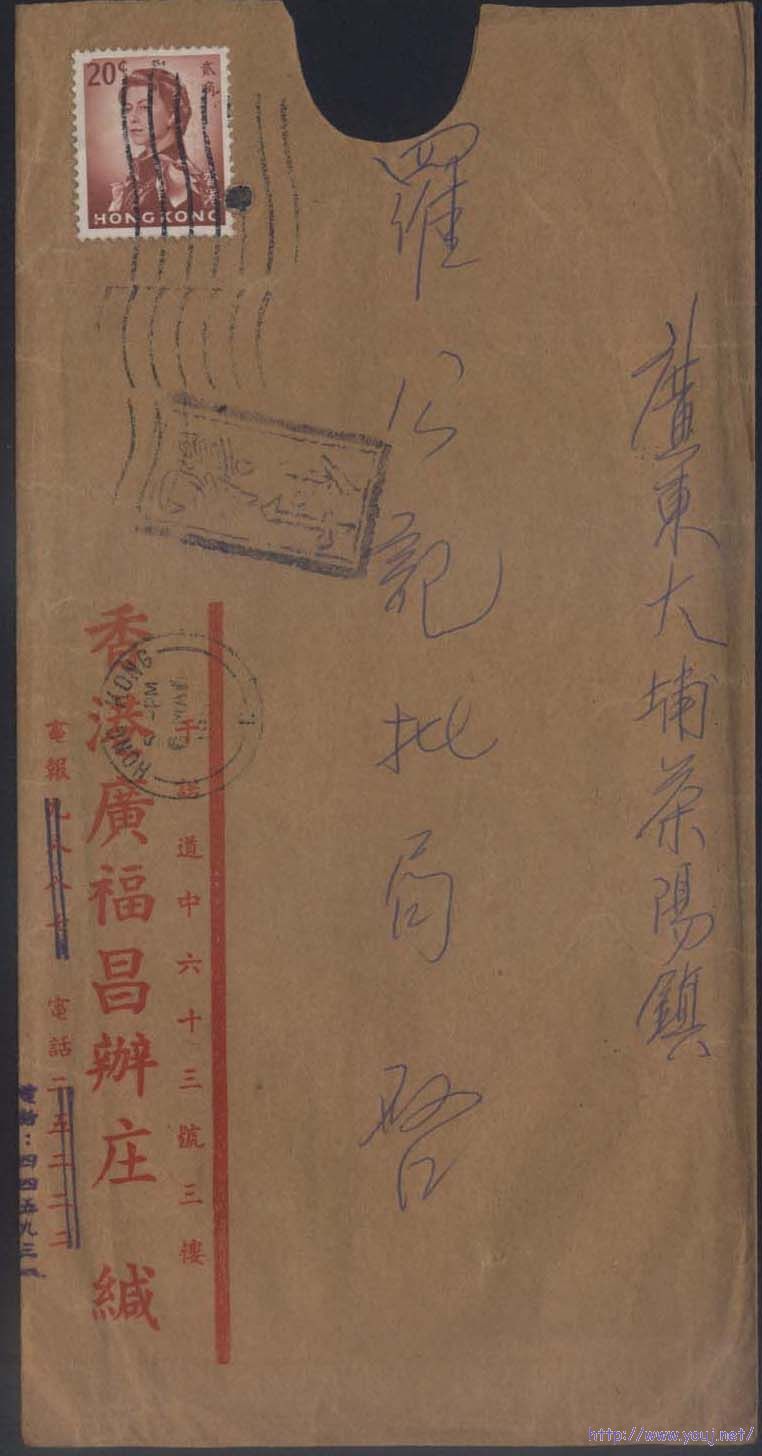 廣東大埔茶陽鎮
羅公記批局啓
20¢
貳角
香港
HONG KONG
HONG KONG
PM
干諾道中六十三號三樓
香港廣福昌辦庄 緘
電報
電話二五二二二
電話:四四五九三
http://www.youj.net/